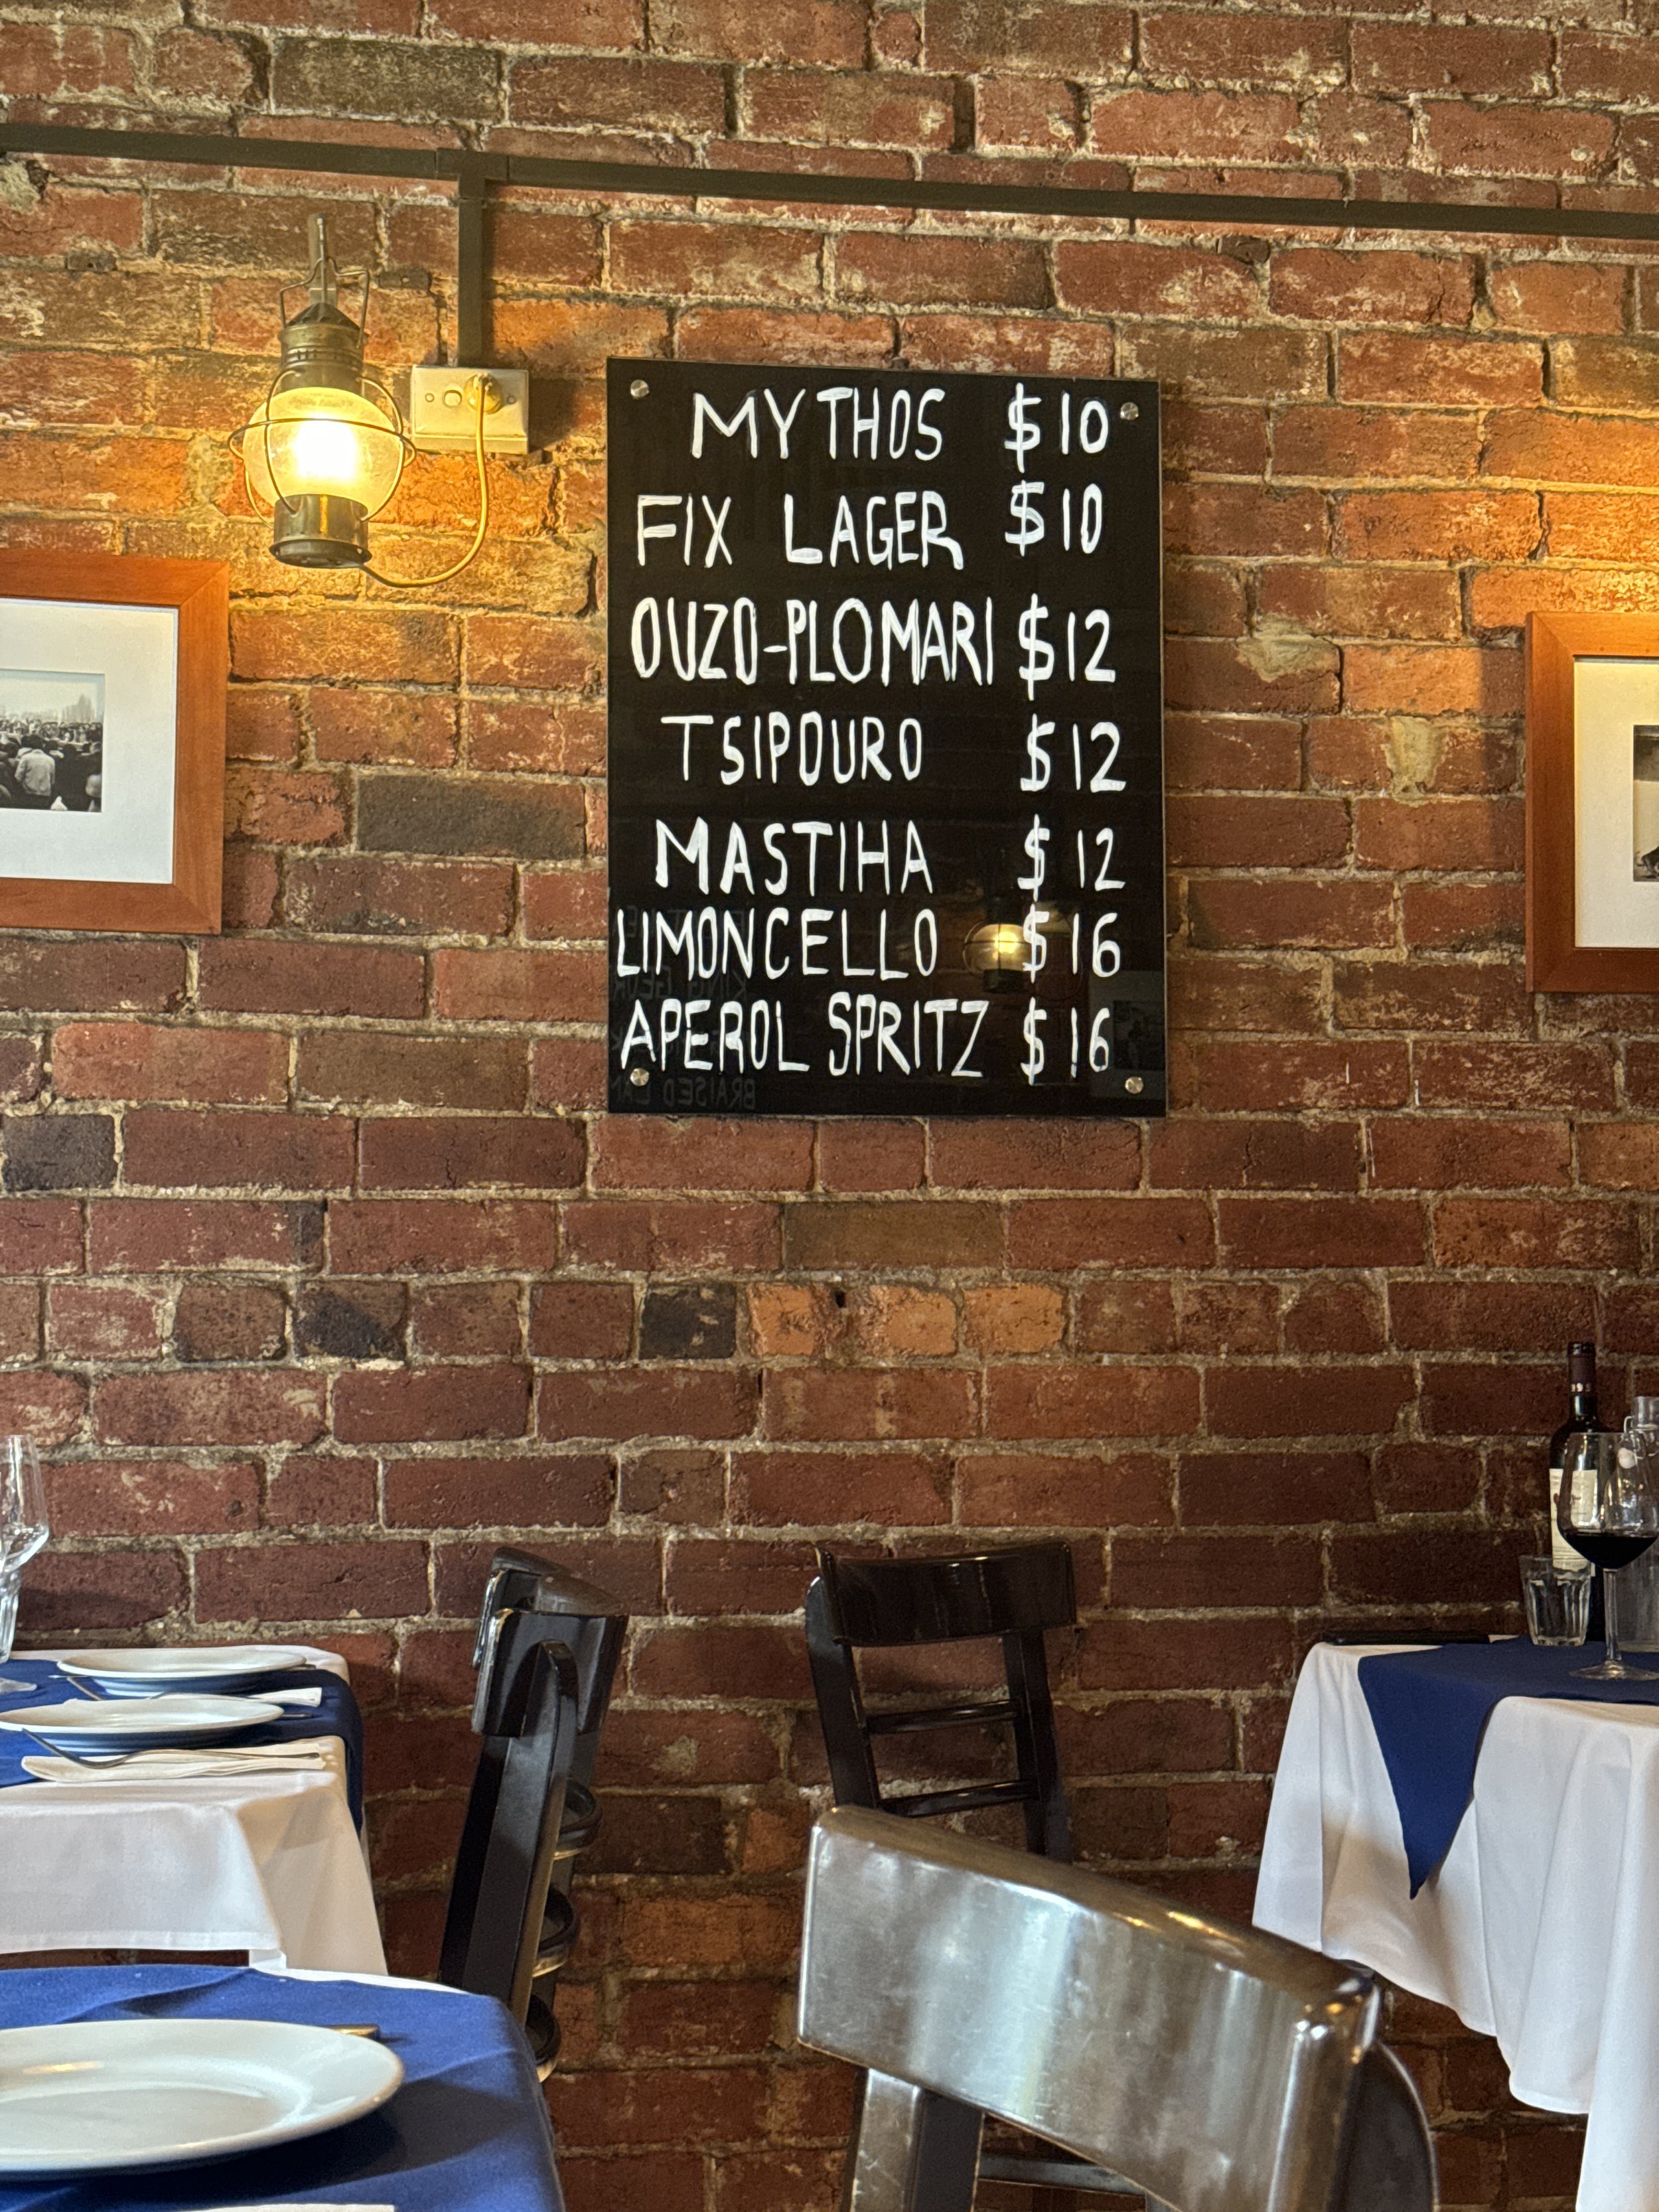 MYTHOS $10
FIX LAGER $10
OUZO-PLOMARI $12
TSIPOURO $12
MASTIHA $12
LIMONCELLO $16
APEROL SPRITZ $16